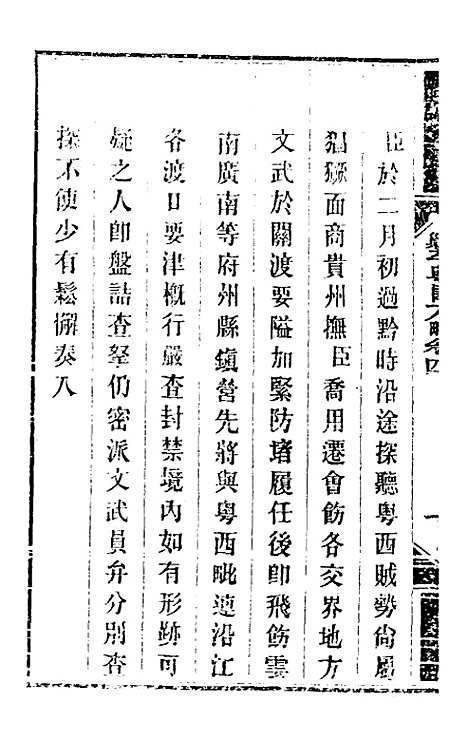 臣於二月初過黔時沿途探聽粵西賊勢尙屬
猖獗面商貴州撫臣喬用遷會飭各交界地方
文武於關渡要隘加緊防堵履任後卽飛飭雲
南廣南等府州縣鎭營先將與粵西毗連沿江
各渡口要津槪行嚴查封禁境內如有形跡可
疑之人卽盤詰查拏仍密派文武員弁分別查
探不使少有鬆懈奏入